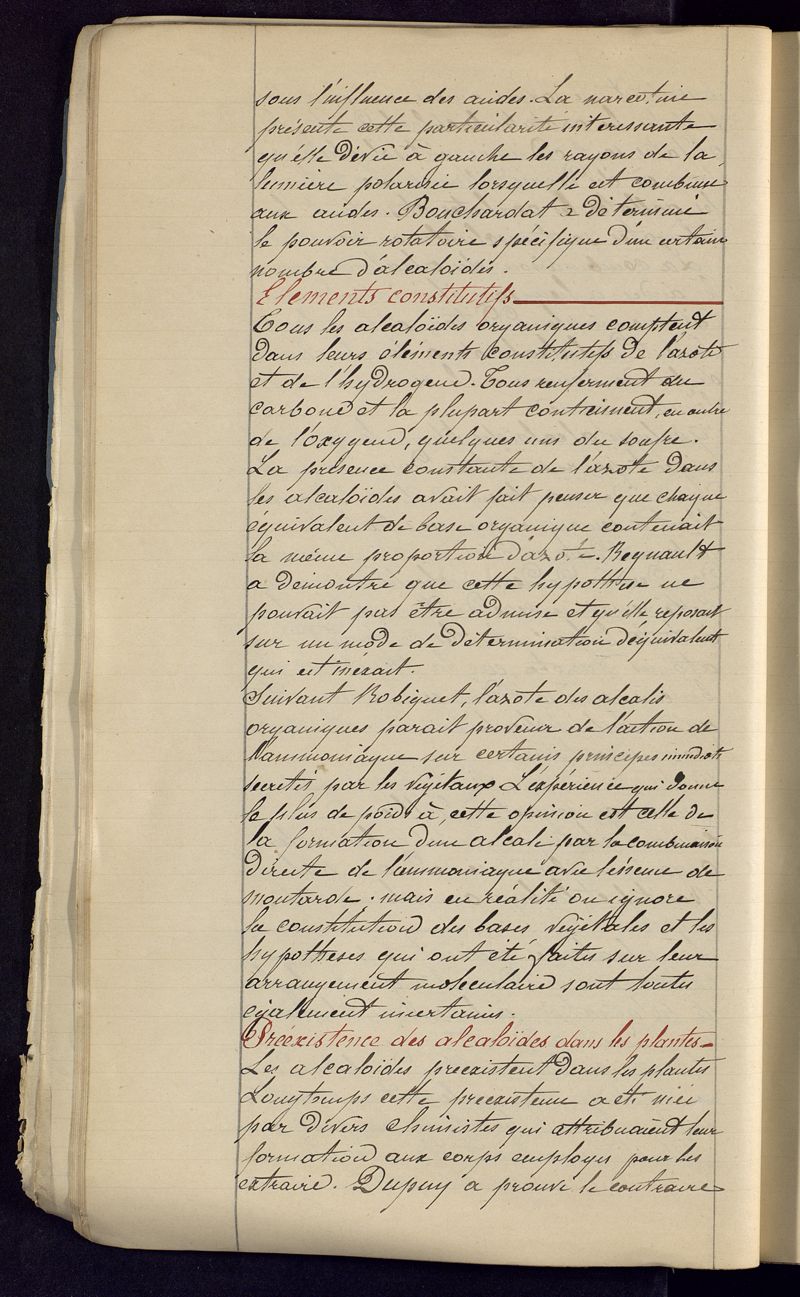 sous l'influence des acides. La narcotine
présente cette particularité interessante
qu'elle dévie à gauche les rayons de la
lumière polarisée lorsquelle est combinée
aux acides. Bouchardat a déterminé
le pouvoir rotatoire spécifique d'un certain
nombre d'alcaloïdes.
Elements constitutifs
Tous les alcaloïdes organiques comptent
dans leurs éléments constitutifs de l'azote
et de l'hydrogene. Tous renferment du
carbone et la plupart contiennent, en outre
de l'oxygene, quelques uns du soufre.
La présence constante de l'azote dans
les alcaloïdes avait fait penser que chaque
équivalent de base organique contenait
la même proportion d'azote. Regnault
a démontré que cette hypothèse ne
pouvait pas être admise et qu'elle reposait
sur un mode de détermination d'équivalent
qui est inexact.
Suivant Robiquet, l'azote des alcalis
organiques parait provenir de l'action de
l'ammoniaque sur certains principes immédiats
secretés par les végétaux L'expérience qui donne
le plus de poids à cette opinion est celle de
la formation d'un alcali par la combinaison
directe de l'ammoniaque avec l'essence de
moutarde. mais en réalité on ignore
la constitution des bases végétales et les
hypotheses qui ont été faites sur leur
arrangement moleculaire sont toutes
également incertaines.
Préexistence des alcaloïdes dans les plantes
Les alcaloïdes preexistent dans les plantes
Longtemps cette preexistence a été niée
par divers chimistes qui attribuaient leur
formation aux corps employés pour les
extraire. Dupuy a prouvé le contraire